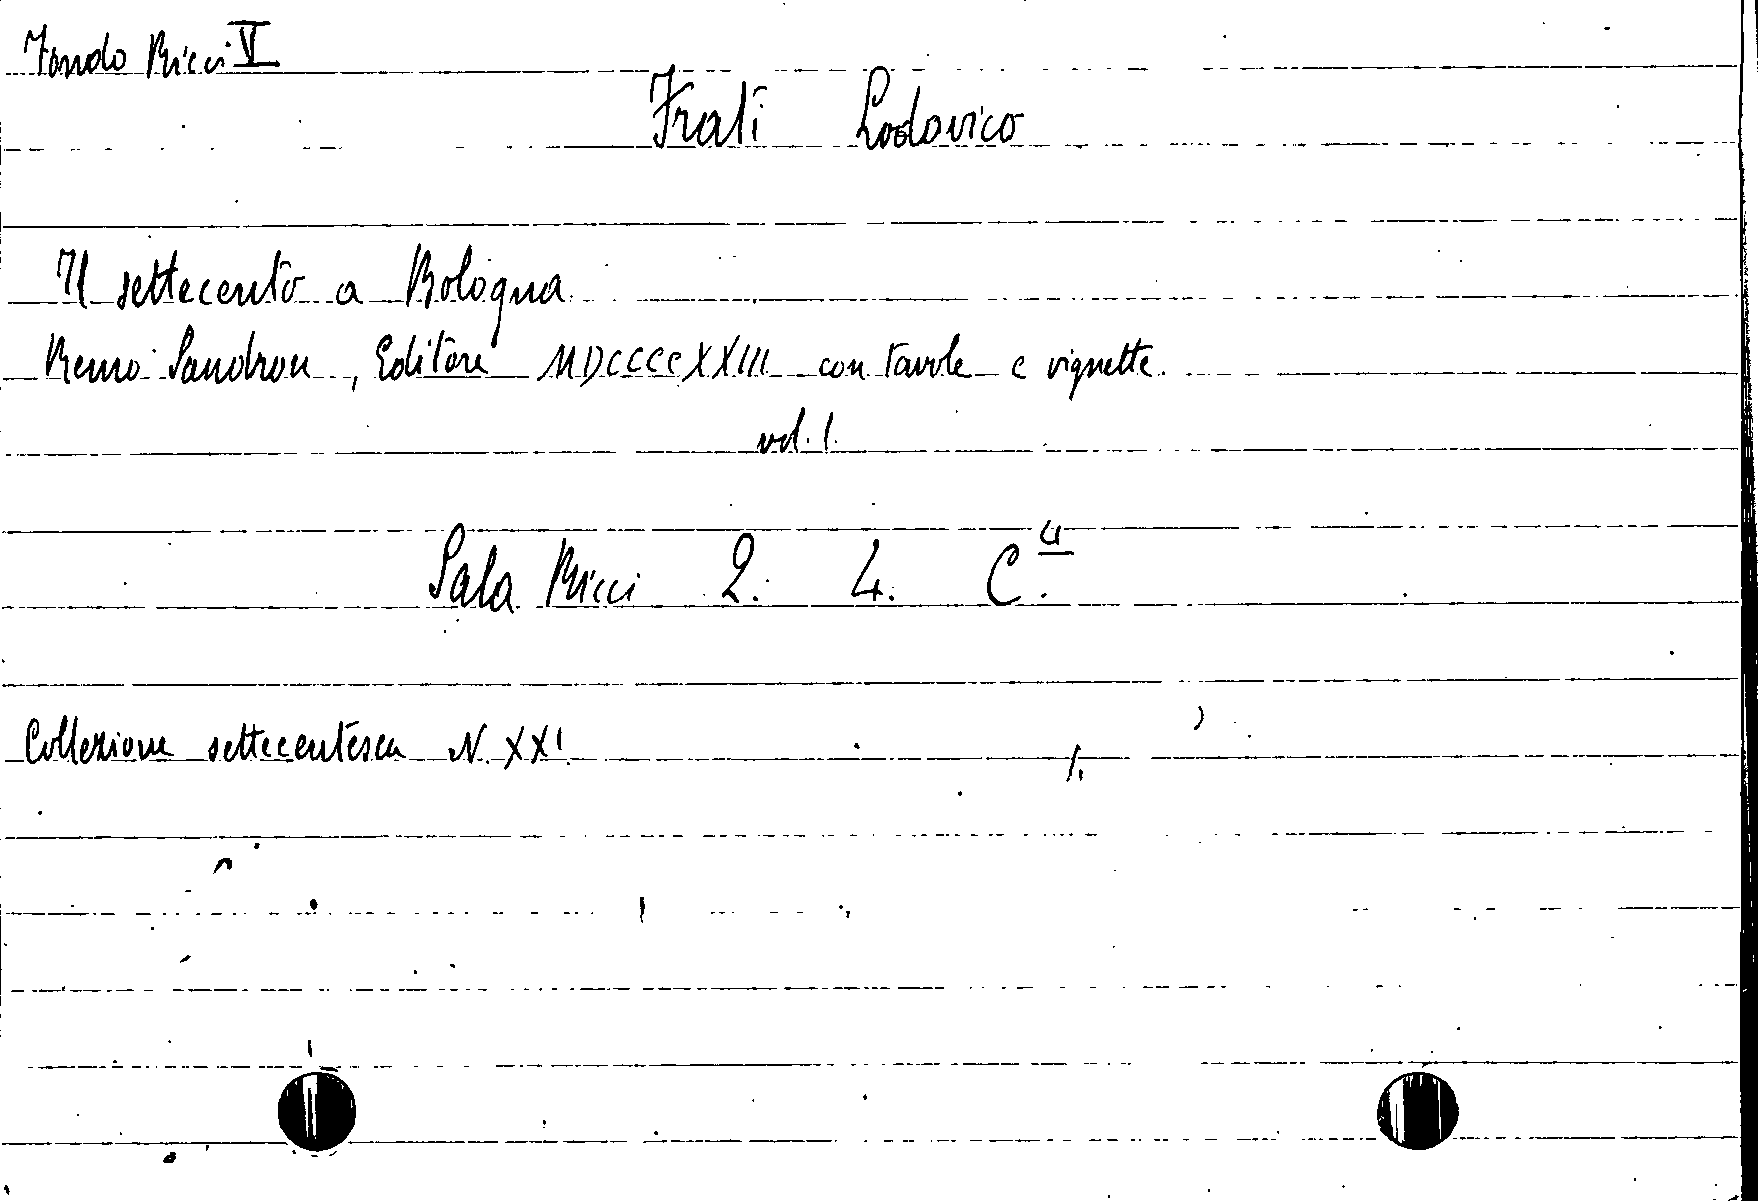 Fondo Ricci V
Frati Lodovico
Il settecento a Bologna
Remo Sandron, Editore MDCCCCXXIII con tavole e vignette.
vol. 1.
Sala Ricci 2. 4. C.4
Collezione settecentesca N. XXI